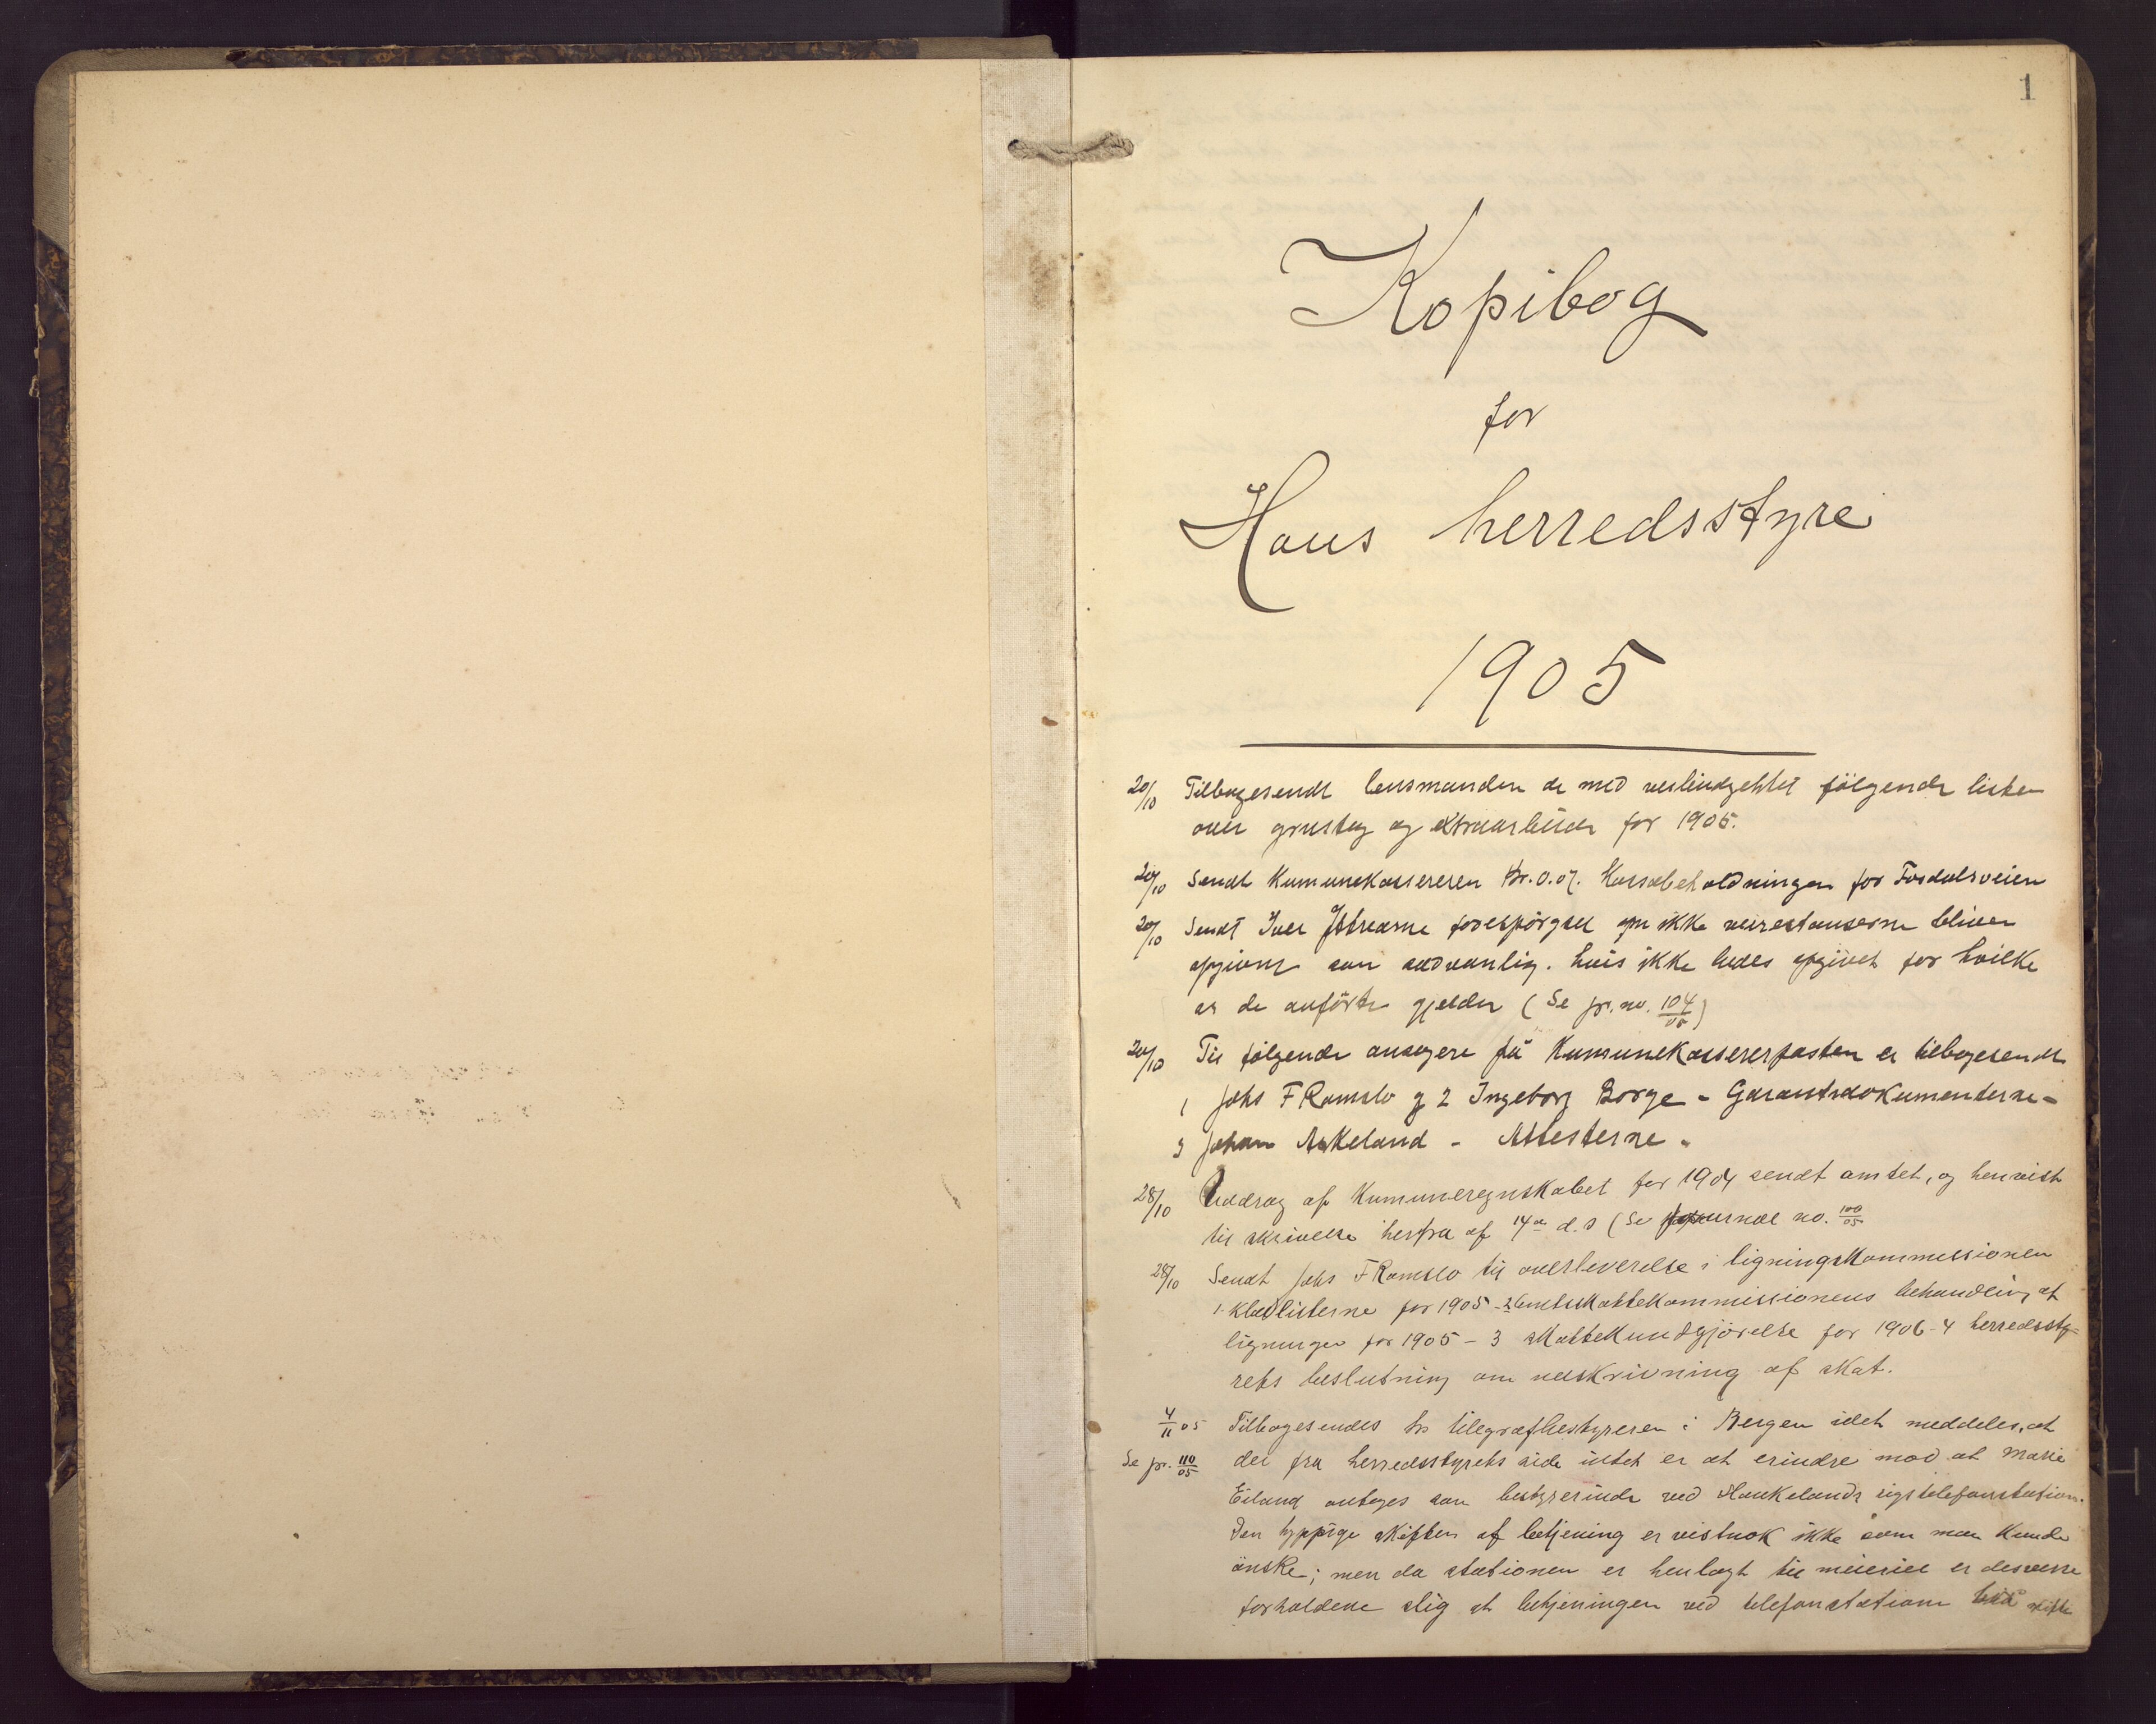 1
Kopibog
for
Haus herredsstyre
1905
20/10 Tilbagesendt lensmanden de med veilindgehtet følgende lister
over grustag og extraarbeide for 1905.
20/10 Sendt Kumunekassereren Kr. 0.07. Kassabeholdningen for Tosdalsveien
20/10 Sendt Iver forespørgsel om ikke veirestanserne bliver
opgivne som sædvanlig. hvis ikke bedes opgivet for hvilke
er de anførte gjelder (Se jr. no. 104/05)
20/10 Til følgende ansøgere på Kumunekassererposten er tilbagesendt
1 Johs F Romslo og 2 Ingeborg Borge - Garantidokumenterne -
3 Johan Askeland - Attesterne -
28/10 Uddrag af Kumuneregnskabet for 1904 sendt amtet, og henvist
til skrivelse herfra af 14de d.s (Se journal no. 100/05
28/10 Sendt Johs F Romslo til overleverelse i ligningskommissionen
1. Kladlisterne for 1905 - 2 amtskattekommissionens behandling af
ligningen for 1905 - 3 skattekundgjørelse for 1906 - 4 herredssty-
rets beslutning om nedskrivning af skat.
4/11 05 Tilbagesendes hr telegrafbestyreren i Bergen idet meddeles, at
Se jr. 110/05 det fra herredsstyrets side intet er at erindre mod at Marie
Eiland antages som bestyrerinde ved Haukelands rigstelefonstation.
Den hyppige skiften af betjening er vistnok ikke som man kunde
ønske; men da stationen er henlagt til meieriet er desverre
forholdene slig at betjeningen ved telefonstation skifte